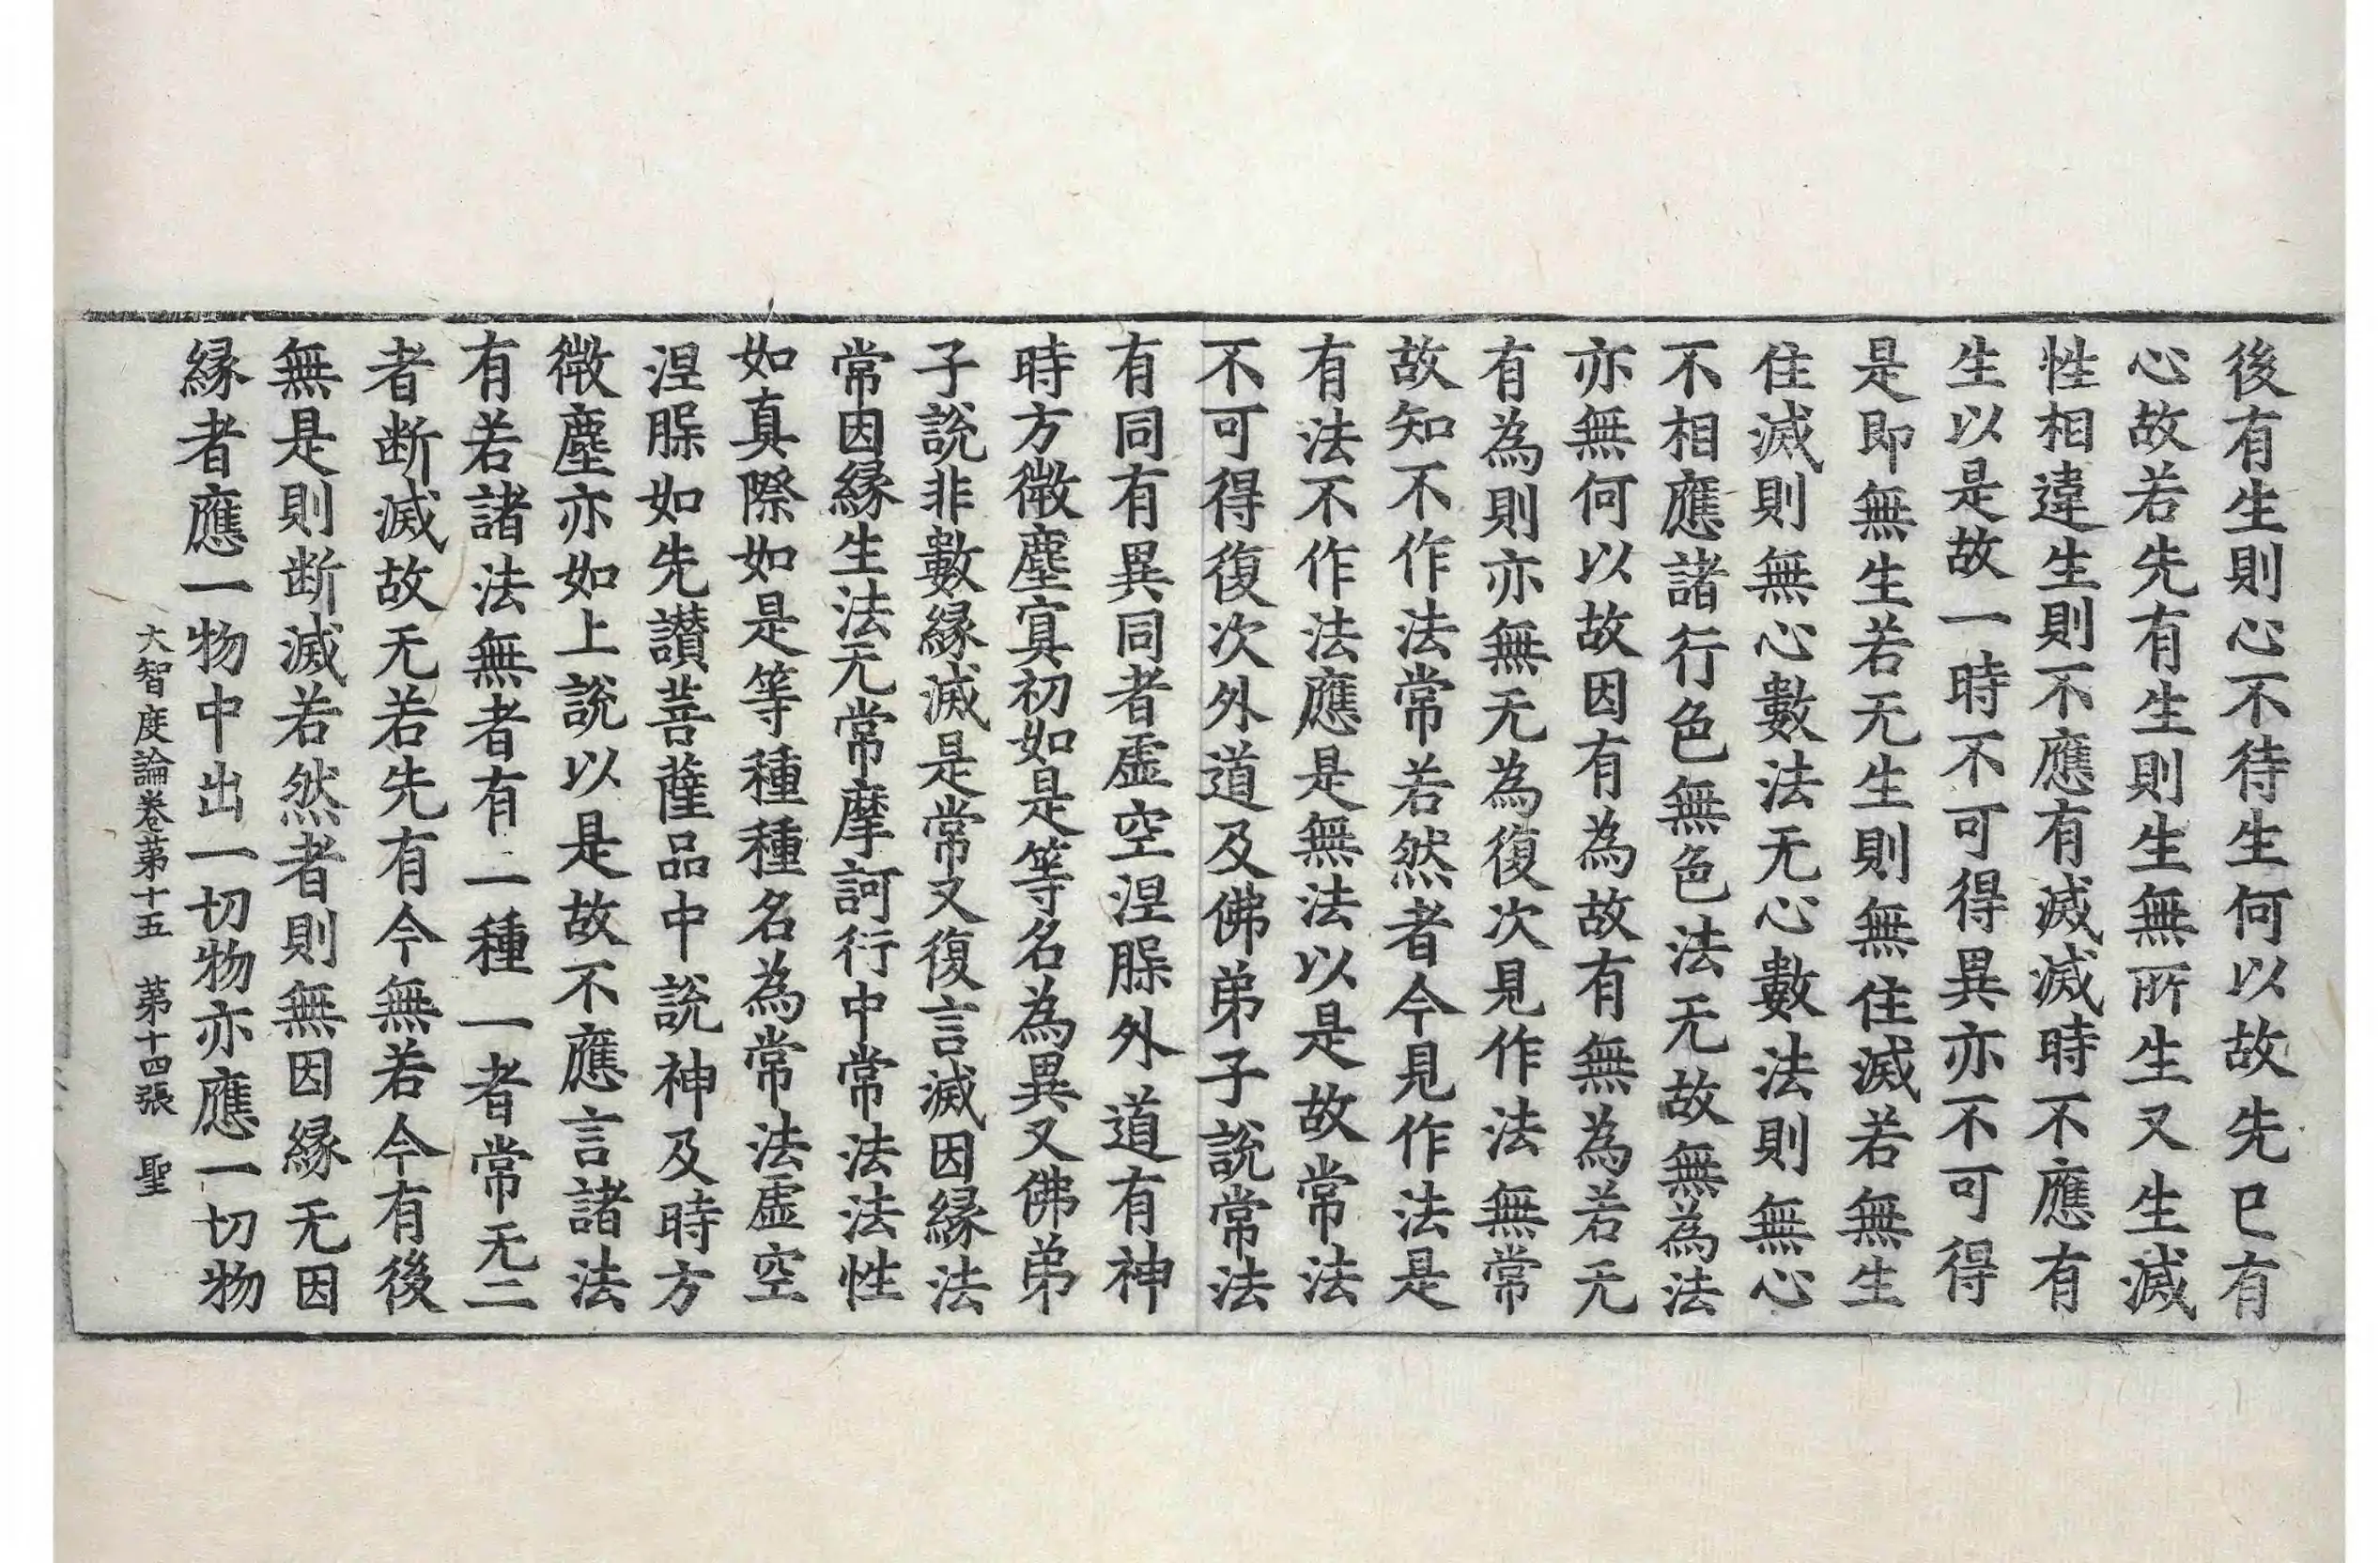 後有生則心不待生何以故先巳有
心故若先有生則生無所生又生滅
性相違生則不應有滅滅時不應有
生以是故一時不可得異亦不可得
是即無生若无生則無住滅若無生
住滅則無心數法无心數法則無心
不相應諸行色無色法无故無為法
亦無何以故因有為故有無為若无
有為則亦無无為復次見作法無常
故知不作法常若然者今見作法是
有法不作法應是無法以是故常法
不可得復次外道及佛弟子說常法
有同有異同者虛空涅槃外道有神
時方微塵冥初如是等名為異又佛弟
子說非數緣滅是常又復言滅因緣法
常因緣生法无常摩訶衍中常法法性
如真際如是等種種名為常法虛空
涅槃如先讚菩薩品中說神及時方
微塵亦如上說以是故不應言諸法
有若諸法無者有二種一者常无二
者断滅故无若先有今無若今有後
無是則断滅若然者則無因緣无因
緣者應一物中出一切物亦應一切物
大智度論卷苐十五 苐十四張 聖